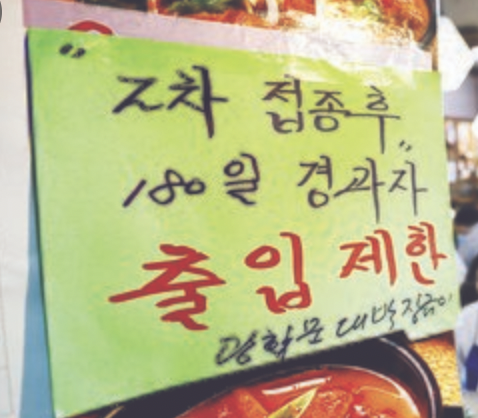 "2차 접종후
180일 경과자"
출입제한
광화문 대박